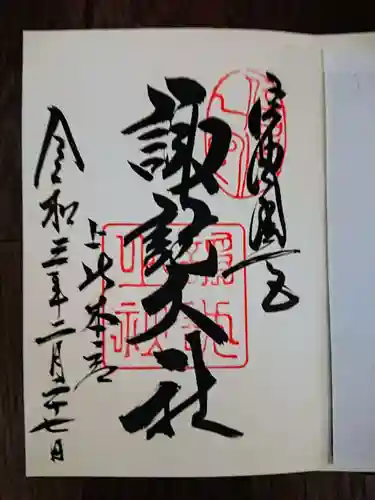 信濃國一宮
諏訪大社
上社本宮
令和三年二月二十七日